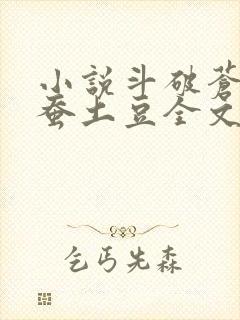 小說斗破蒼
蚕土豆全文
乞丐先森